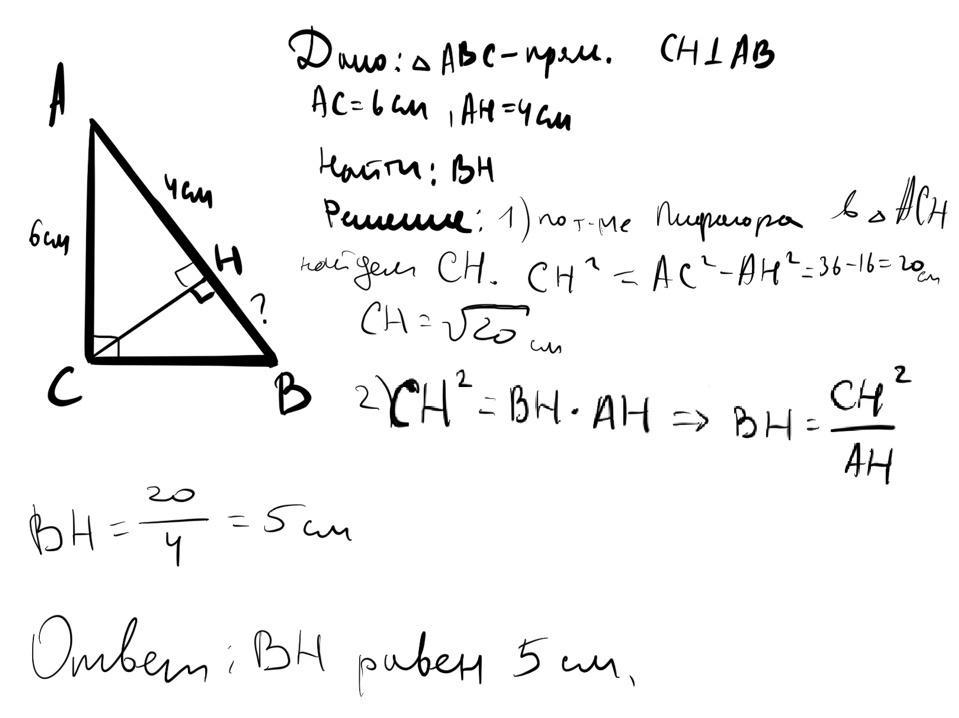 Дано: △ ABC - прям. CH⊥AB
AC = 6 см, AH = 4 см
Найти: BH
Решение: 1) по т-ме Пифагора в △ ACH
найдем CH. CH² = AC² - AH² = 36 - 16 = 20 см
CH = √20 см
2) CH² = BH · AH ⇒ BH = CH²/AH
BH = 20/4 = 5 см
Ответ: BH равен 5 см.
A
4 см
6 см
H
?
C
B